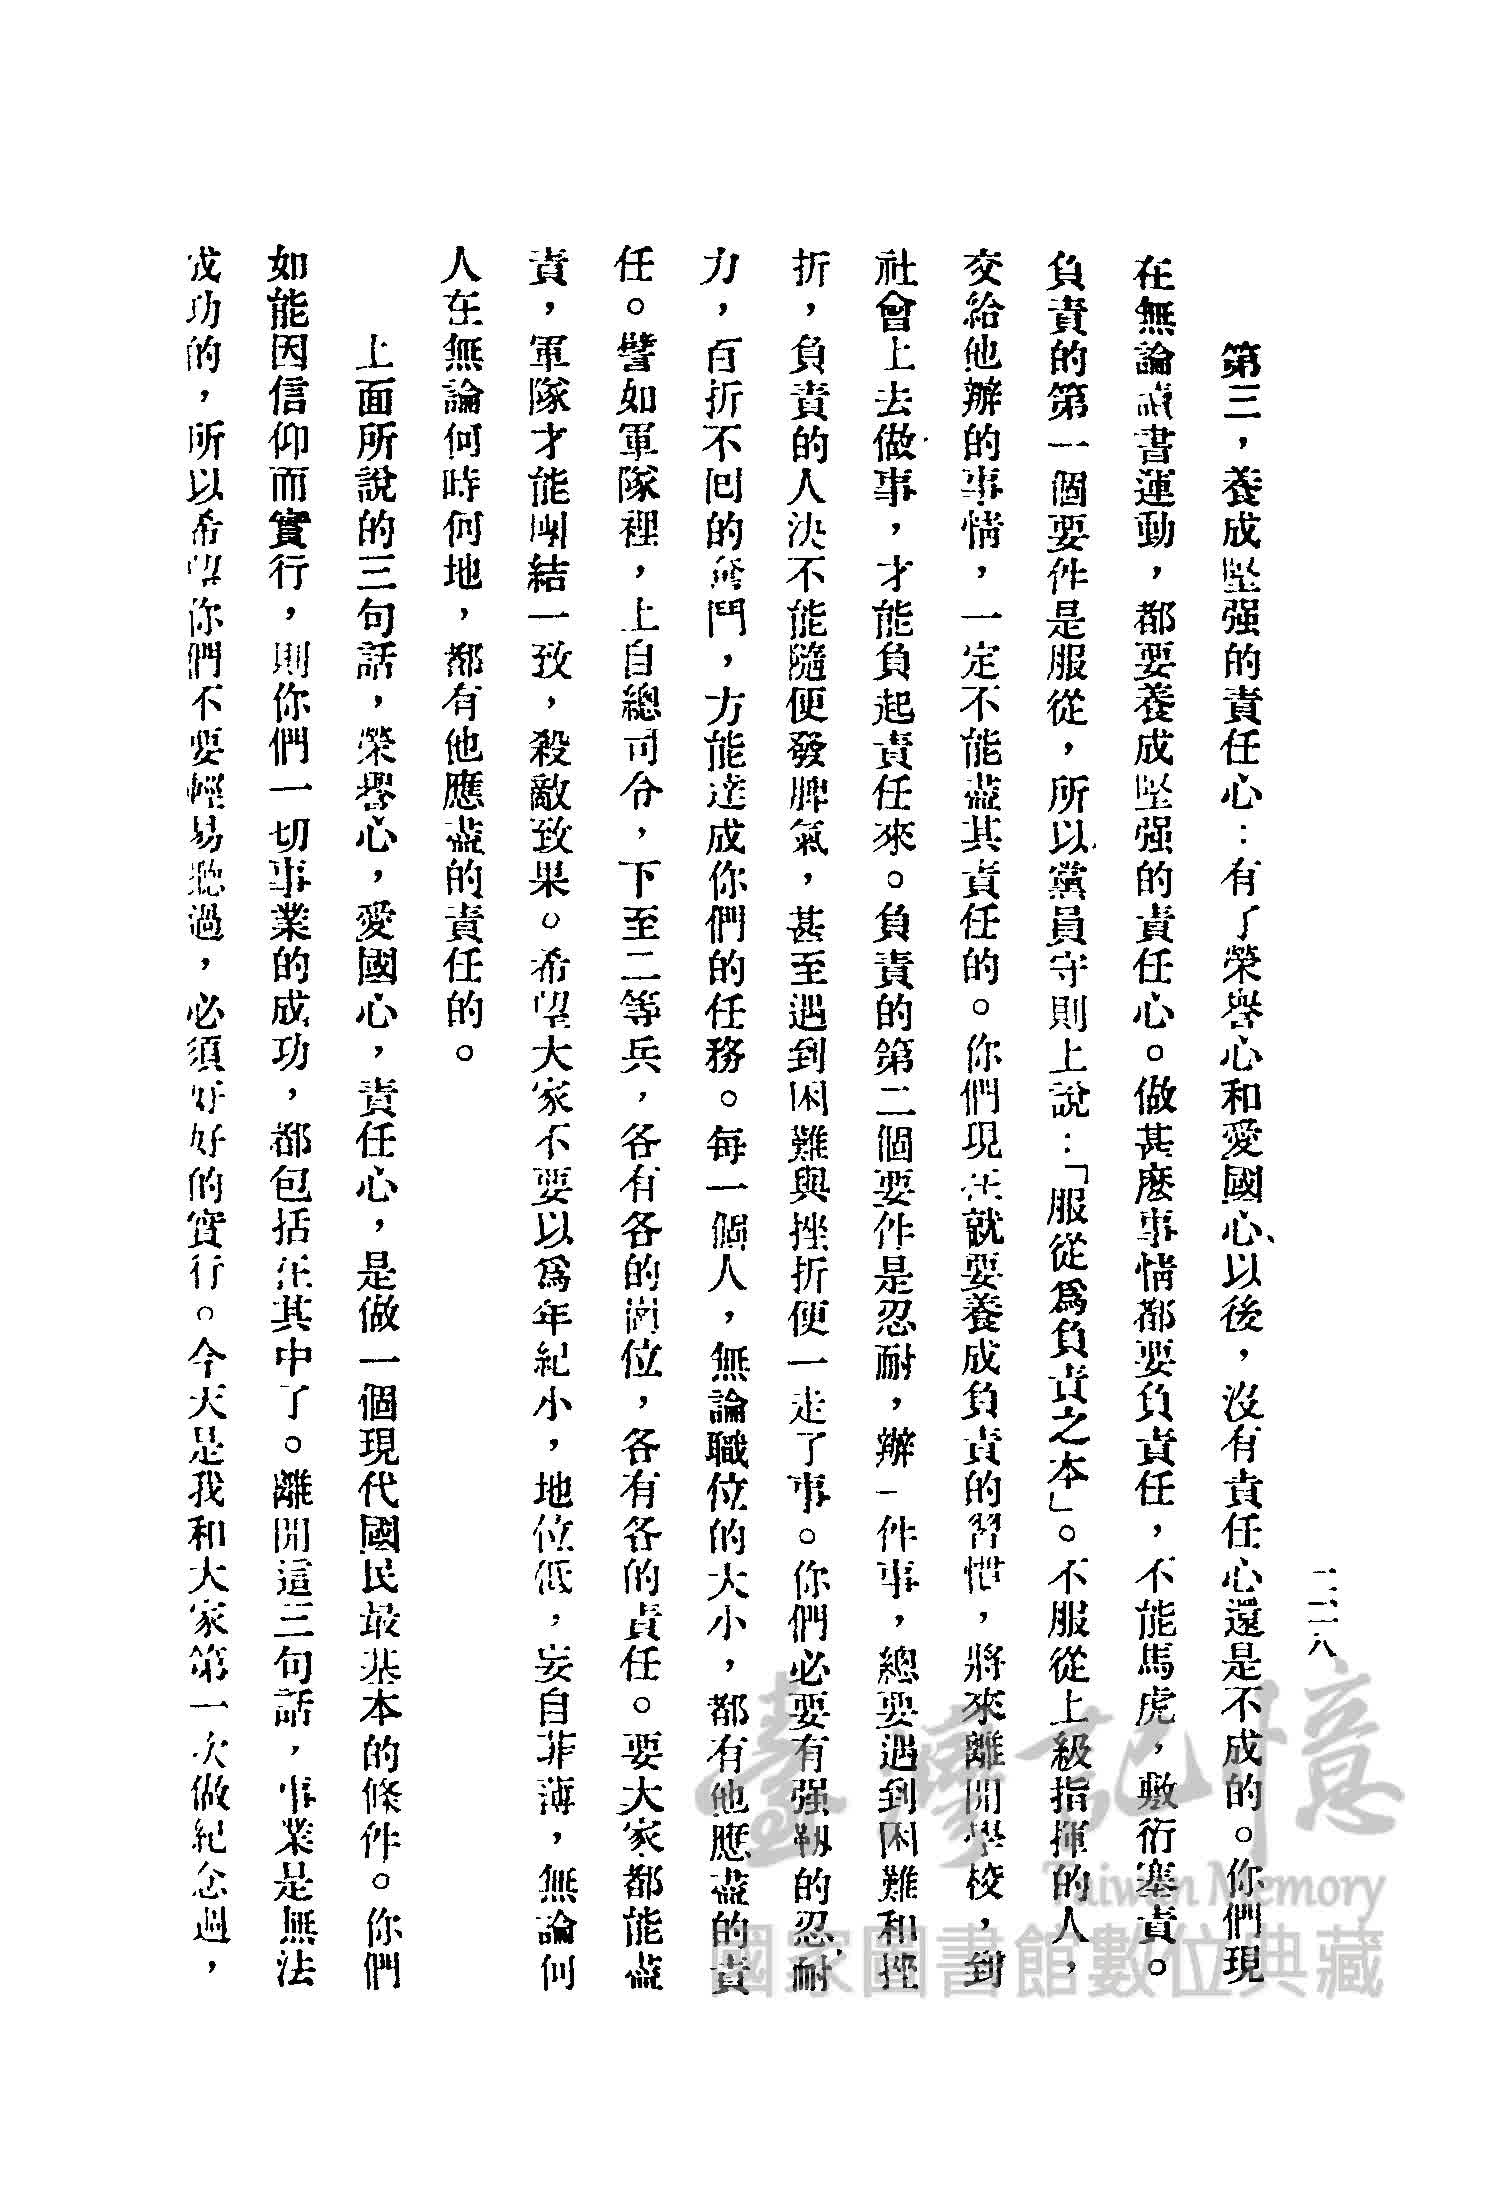 第三，養成堅强的責任心：有了榮譽心和愛國心、以後，沒有責任心還是不成的。你們現
在無論讀書運動，都要養成堅强的責任心。做甚麽事情都要負責任，不能馬虎，敷衍塞責。
負責的第一個要件是服從，所以黨員守則上說：「服從爲負責之本」。不服從上級指揮的人，
交給他辦的事情，一定不能盡其責任的。你們現在就要養成負責的習慣，將來離開學校，到
社會上去做事，才能負起責任來。負責的第二個要件是忍耐，辦一件事，總要遇到困難和挫
折，負責的人決不能隨便發脾氣，甚至遇到困難與挫折便一走了事。你們必要有强靱的忍耐
力，百折不囘的奮鬥，方能達成你們的任務。每一個人，無論職位的大小，都有他應盡的責
任。譬如軍隊裡，上自總司令，下至二等兵，各有各的崗位，各有各的責任。要大家都能盡
責，軍隊才能團結一致，殺敵致果。希望大家不要以爲年紀小，地位低，妄自菲薄，無論何
人在無論何時何地，都有他應盡的責任的。
上面所說的三句話，榮譽心，愛國心，責任心，是做一個現代國民最基本的條件。你們
如能因信仰而實行，則你們一切事業的成功，都包括在其中了。離開這三句話，事業是無法
成功的，所以希望你們不要輕易聽過，必須好好的實行。今天是我和大家第一次做紀念週，
臺灣記憶
Taiwan Memory
國家圖書館數位典藏